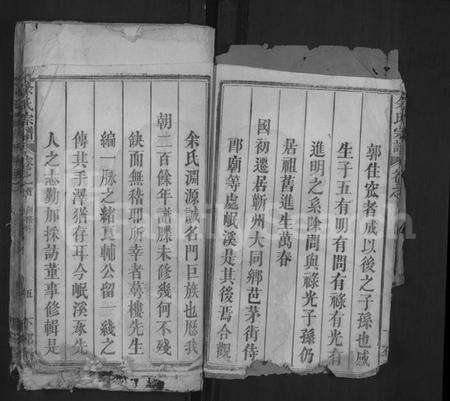 郭佳窊者咸以後之子孫也咸
生子五有明有問有祿有光有
進明之系隙問與祿光子孫仍
居祖舊進生萬春
國初遷居蘄州大同鄉芭茅街侍
郎廟等處岷溪是其後焉合觀
余氏淵源誠名門巨族也歷我
朝二百餘年譜牒未修幾何不殘
缺而無稽耶所幸者夢樓先生
編一脉之緒真輔公留一綫之
傳其手澤猶存耳今岷溪承先
人之志勤加採訪董事修輯是
余氏宗譜
FamilySearch